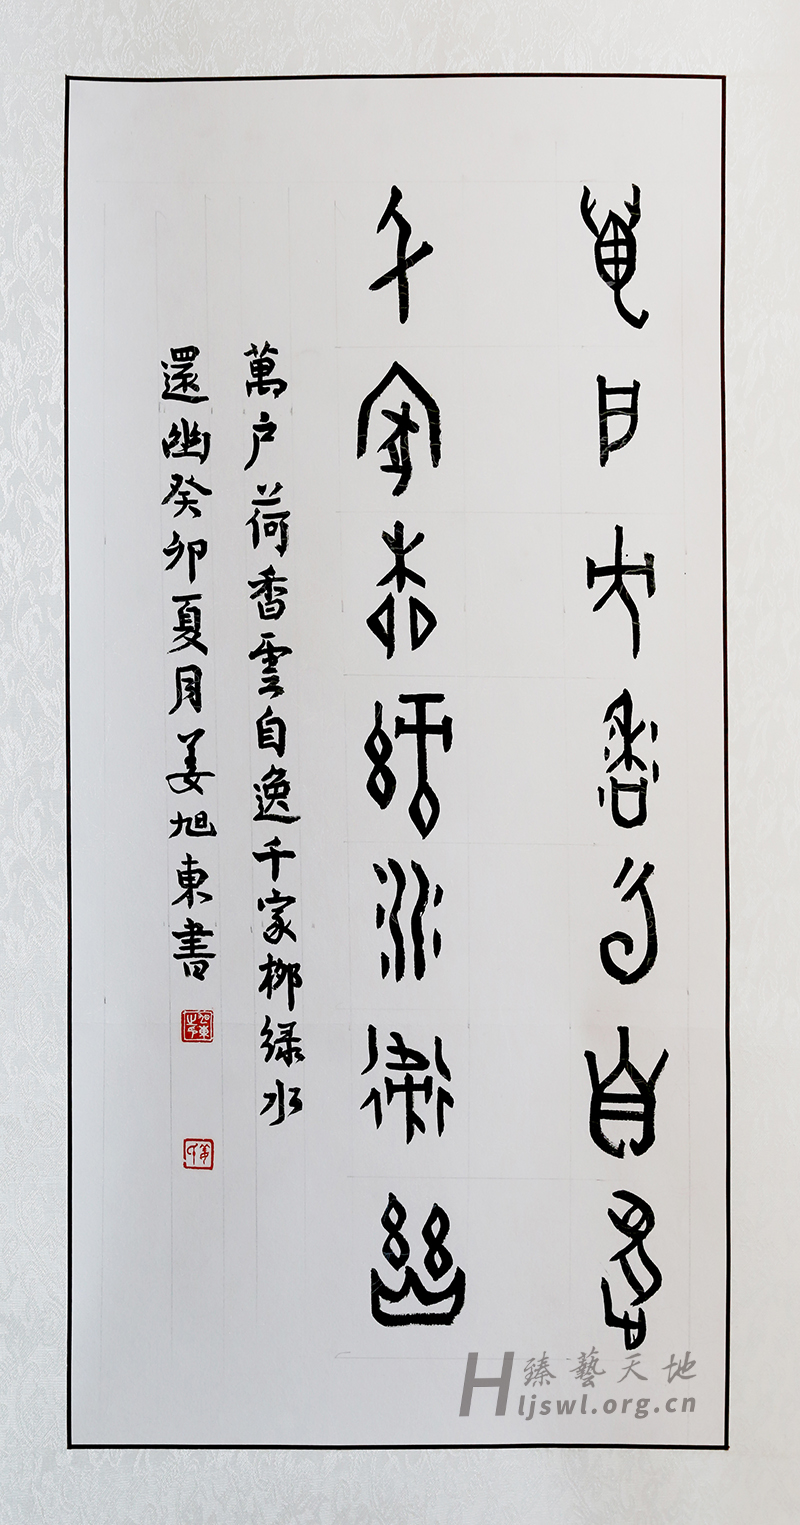 萬户荷香雲自逸
千家柳绿水還幽
萬户荷香雲自逸千家柳绿水
還幽癸卯夏月姜旭東書
臻藝天地
Hljswl.org.cn